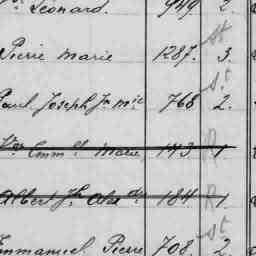 Léonard. 949 2.
Pierre Marie 1287. St 3.
Paul Joseph Jn Mie 768 St 2.
Emm el Marie 143 R 1
Albert Jh 184 R 1
Emmanuel Pierre 708. St 2.